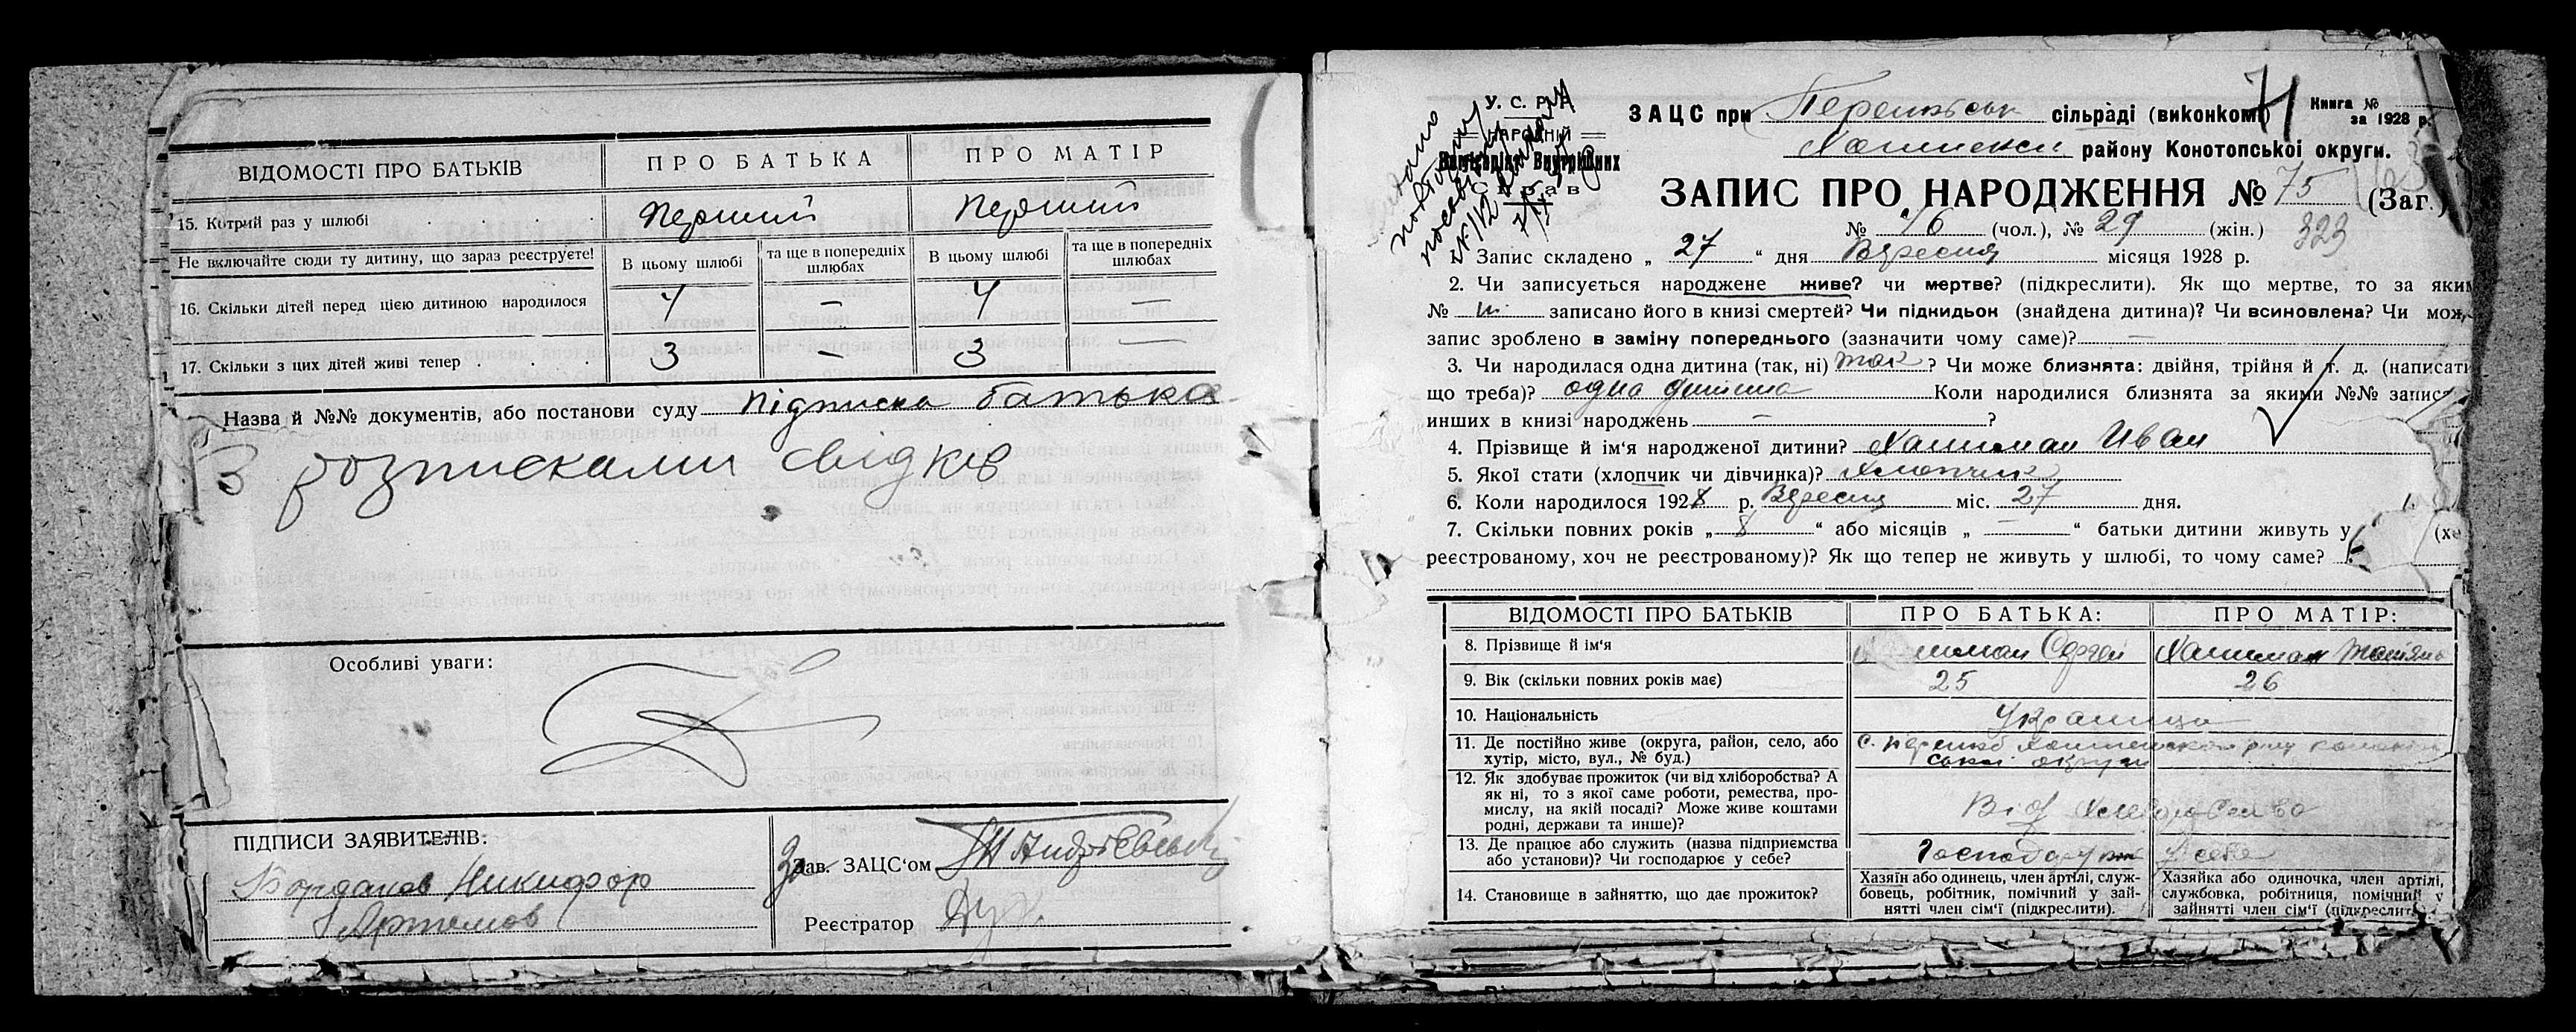 ВІДОМОСТІ ПРО БАТЬКІВ
ПРО БАТЬКА
ПРО МАТІР
15. Котрий раз у шлюбі
перший
перший
Не включайте сюди ту дитину, що зараз реєструєте!
В цьому шлюбі
та ще в попередніх шлюбах
В цьому шлюбі
та ще в попередніх шлюбах
16. Скільки дітей перед цією дитиною народилося
4 — 4 —
17. Скільки з цих дітей живі тепер . . .
3 — 3 —
Назва й №№ документів, або постанови суду підписка батька
З розписками свідків
Особливі уваги:
ПІДПИСИ ЗАЯВИТЕЛІВ:
Богданов Никифор
Артемов
За Зав. ЗАЦС‘ом
Реєстратор
У. С. Р. Р.
НАРОДНІЙ
Внутрішних
Справ
ЗАЦС при сільраді (виконкомі) 71
Книга №
за 1928 р.
району Конотопської округи.
ЗАПИС ПРО НАРОДЖЕННЯ № 75 (Заг.)
№ 46 (чол.), № 29 (жін.) 323
1. Запис складено „ 27 “ дня Вересня місяця 1928 р.
2. Чи записується народжене живе? чи мертве? (підкреслити). Як що мертве, то за яким
№ записано його в книзі смертей? Чи підкидьок (знайдена дитина)? Чи всиновлена? Чи мож
запис зроблено в заміну попереднього (зазначити чому саме)? —
3. Чи народилася одна дитина (так, ні) так? Чи може близнята: двійня, трійня й т. д. (написати
що треба)? одна дитина Коли народилися близнята за якими №№ записа
инших в книзі народжень — ?
4. Прізвище й ім‘я народженої дитини? Хоменко Иван
5. Якої стати (хлопчик чи дівчинка)? Хлопчик
6. Коли народилося 1928 р. Вересня міс. 27 дня.
7. Скільки повних років „ 8 “ або місяців „ — “ батьки дитини живуть у
реєстрованому, хоч не реєстрованому)? Як що тепер не живуть у шлюбі, то чому саме?
ВІДОМОСТІ ПРО БАТЬКІВ
ПРО БАТЬКА:
ПРО МАТІР:
8. Прізвище й ім‘я
9. Вік (скільки повних років має)
25
26
10. Національність
Українці
11. Де постійно живе (округа, район, село, або
хутір, місто, вул., № буд.)
12. Як здобуває прожиток (чи від хліборобства? А
як ні, то з якої саме роботи, ремества, про-
мислу, на якій посаді? Може живе коштами
родні, держави та инше)?
Від Хлеборобства
13. Де працює або служить (назва підприємства
або установи)? Чи господарює у себе?
Господарує у себе
14. Становище в зайняттю, що дає прожиток?
Хазяїн або одинець, член артілі, служ-
бовець, робітник, помічний у зай-
нятті член сім‘ї (підкреслити).
Хазяйка або одиночка, член артілі,
службовка, робітниця, помічний у
зайнятті член сім‘ї (підкреслит